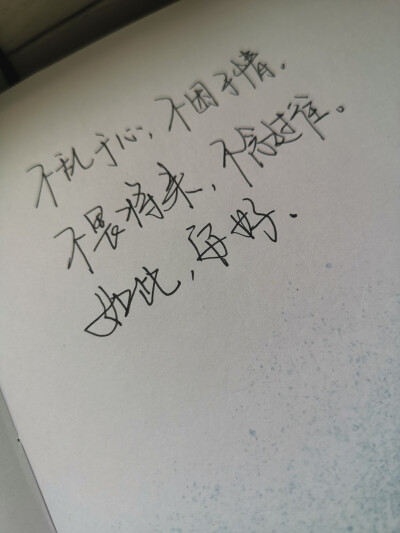 不乱于心，不困于情。
不畏将来，不念过往。
如此，安好.